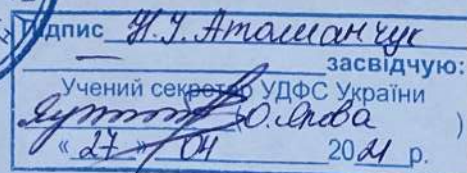 Підпис Н.І. Атаманчук
засвідчую:
Учений секретар УДФС України
(О. Лпова )
« 27 » 04 2021 р.